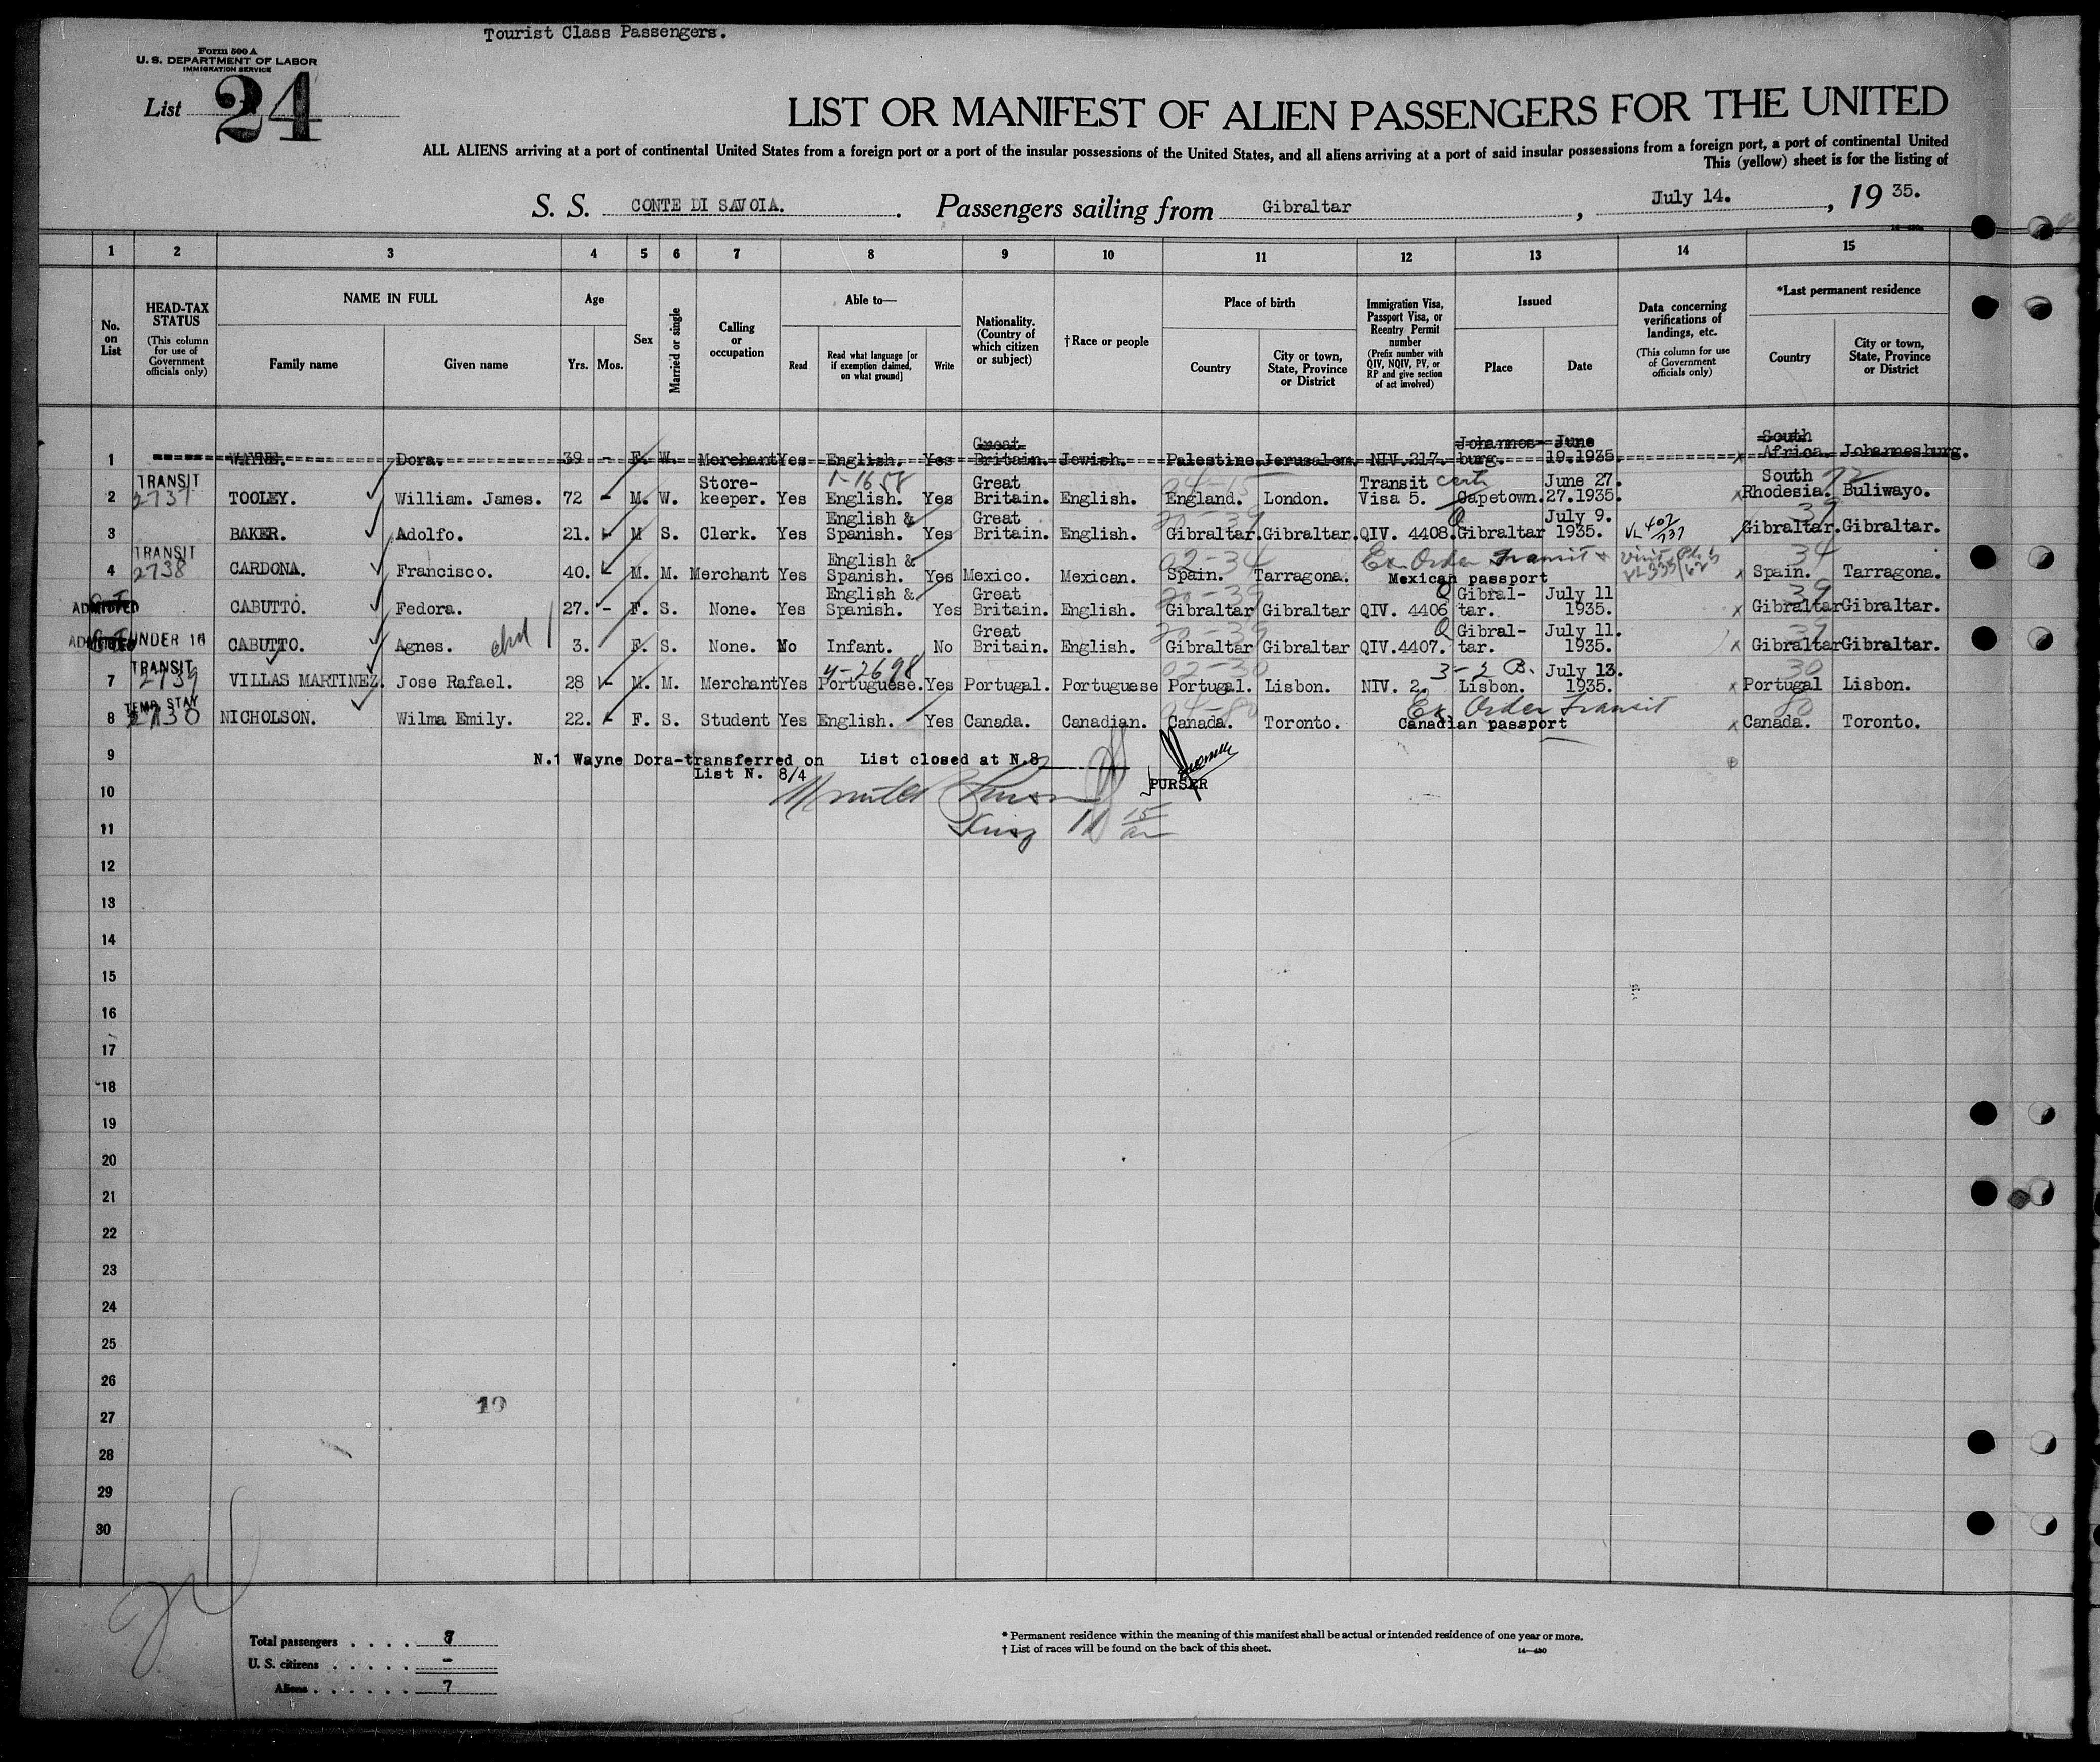 Tourist Class Passengers.
Form 500 A
U. S. DEPARTMENT OF LABOR
IMMIGRATION SERVICE
List 24
LIST OR MANIFEST OF ALIEN PASSENGERS FOR THE UNITED
ALL ALIENS arriving at a port of continental United States from a foreign port or a port of the insular possessions of the United States, and all aliens arriving at a port of said insular possessions from a foreign port, a port of continental United
This (yellow) sheet is for the listing of
S. S. CONTE DI SAVOIA. Passengers sailing from Gibraltar, July 14., 19 35.
1 2 3 4 5 6 7 8 9 10 11 12 13 14 15
No. on List
HEAD-TAX STATUS
(This column for use of Government officials only)
NAME IN FULL
Family name Given name
Age
Yrs. Mos.
Sex
Married or single
Calling or occupation
Able to—
Read
Read what language [or if exemption claimed, on what ground]
Write
Nationality. (Country of which citizen or subject)
†Race or people
Place of birth
Country
City or town, State, Province or District
Immigration Visa, Passport Visa, or Reentry Permit number
(Prefix number with QIV, NQIV, PV, or RP and give section of act involved)
Issued
Place Date
Data concerning verifications of landings, etc.
(This column for use of Government officials only)
*Last permanent residence
Country
City or town, State, Province or District
1 WAYNE. Dora. 39 - F. W. Merchant Yes English. Yes Great Britain. Jewish. Palestine Jerusalem. NIV 217. Johannesburg. June 19.1935. South Africa. Johannesburg.
2 TRANSIT 2737 TOOLEY. William. James. 72 - M. W. Storekeeper. Yes 1-1658 English. Yes Great Britain. English. 04-15 England. London. Transit Visa 5. Capetown. June 27. 27.1935. South Rhodesia. 72 Buliwayo.
3 BAKER. Adolfo. 21. - M S. Clerk. Yes English & Spanish. Yes Great Britain. English. 20-39 Gibraltar. Gibraltar. QIV. 4408. Q Gibraltar July 9. 1935. VL 402/737 39 Gibraltar. Gibraltar.
4 TRANSIT 2738 CARDONA. Francisco. 40. - M. M. Merchant Yes English & Spanish. Yes Mexico. Mexican. 02-34 Spain. Tarragona. Ex Order Transit Mexican passport 34 Spain. Tarragona.
ADMITTED CABUTTO. Fedora. 27. - F. S. None. Yes English & Spanish. Yes Great Britain. English. 20-39 Gibraltar Gibraltar QIV. 4406 Q Gibraltar. July 11 1935. 39 Gibraltar Gibraltar.
ADMITTED UNDER 16 CABUTTO. Agnes. chd 3. F. S. None. No Infant. No Great Britain. English. 20-39 Gibraltar Gibraltar QIV.4407. Q Gibraltar. July 11. 1935. 39 Gibraltar Gibraltar.
7 TRANSIT 2739 VILLAS MARTINEZ. Jose Rafael. 28 - M. M. Merchant Yes 4-2698 Portuguese. Yes Portugal. Portuguese 02-30 Portugal. Lisbon. NIV. 2. 3-2 B. Lisbon. July 13. 1935. 30 Portugal Lisbon.
8 TEMP. STAY 2730 NICHOLSON. Wilma Emily. 22. - F. S. Student Yes English. Yes Canada. Canadian. 04-80 Canada. Toronto. Ex Order Transit Canadian passport 80 Canada. Toronto.
9 N.1 Wayne Dora-transferred on List N. 8/4 List closed at N.8
PURSER
10
11 11 15
12
13
14
15
16
17
18
19
20
21
22
23
24
25
26
27
28
29
30
19
24
Total passengers . . . . 8
U. S. citizens . . . . . -
Aliens . . . . . . 7
* Permanent residence within the meaning of this manifest shall be actual or intended residence of one year or more.
† List of races will be found on the back of this sheet.
14—430